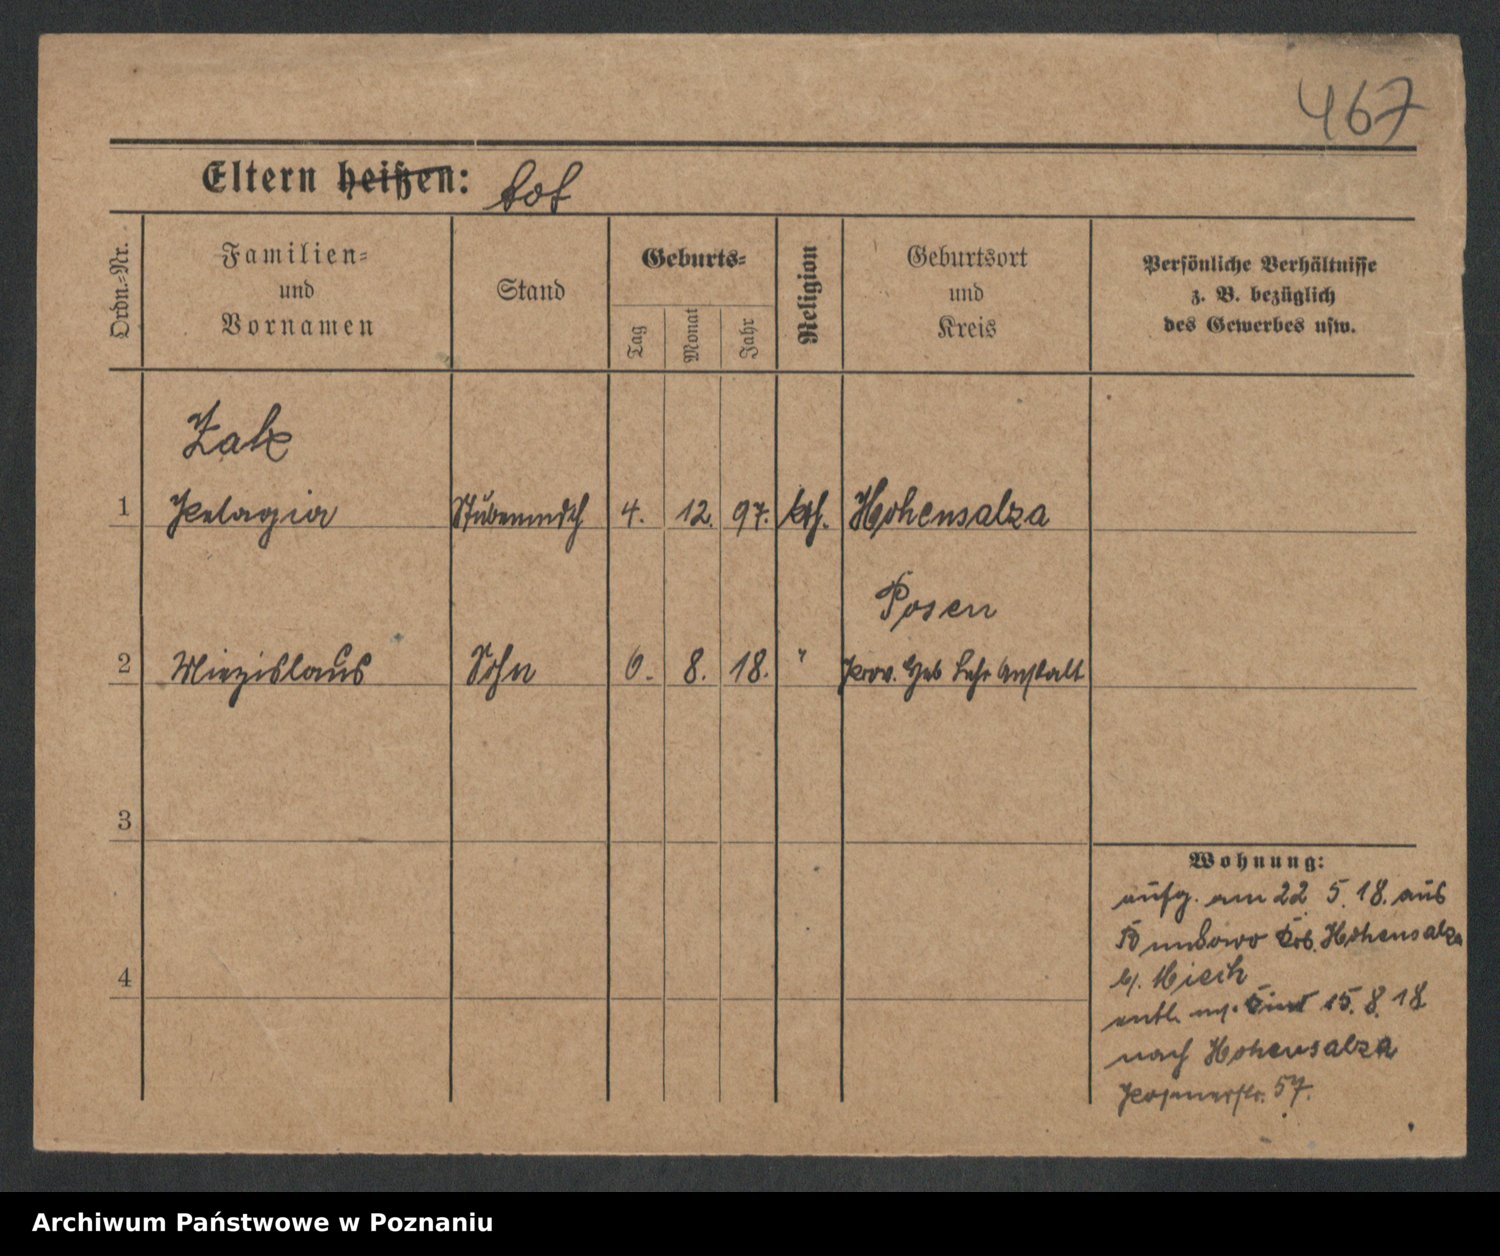 467
Eltern heißen: tot
Ordn.-Nr.
Familien-
und
Vornamen
Stand
Geburts-
Tag
Monat
Jahr
Religion
Geburtsort
und
Kreis
Persönliche Verhältnisse
z. B. bezüglich
des Gewerbes usw.
Zak
1 Pelagia Stubenmdch 4. 12. 97. kth. Hohensalza
Posen
2 Miezislaus Sohn 6. 8. 18. " Prov. Heb Lehr Anstalt
3
4
Wohnung:
aufg. am 22 5. 18. aus
Krs. Hohensalza
b/.
entl. m/. Kind 15. 8. 18
nach Hohensalza
Posenerstr. 57.
Archiwum Państwowe w Poznaniu